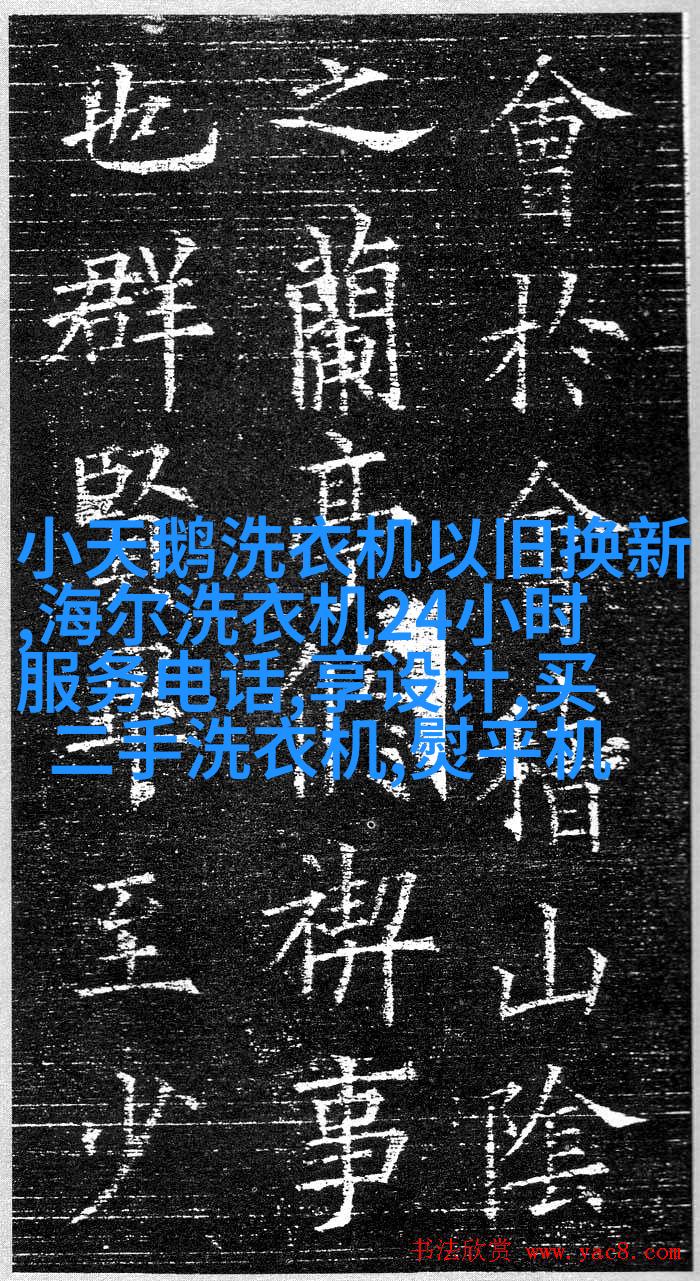 會於會稽山陰
之蘭亭禊事
也群賢畢至少
小天鹅洗衣机以旧换新
,海尔洗衣机24小时
服务电话,享设计,买
二手洗衣机,熨平机
书法欣赏 www.yac8.com